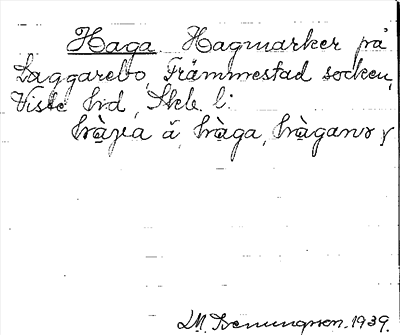 Haga Hagmarker på
Laggarebo, Främmestad socken,
Viste hrd, Skb. l:
hàga ä, hàga, hàganr
1939.